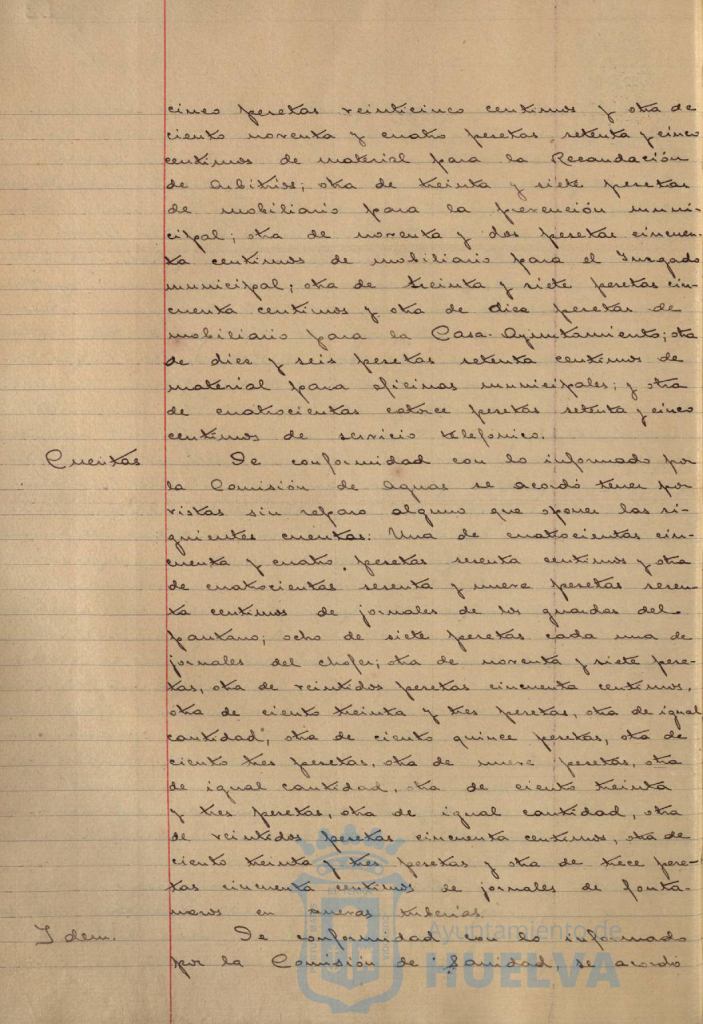 cinco pesetas veinticinco centimos y otra de
ciento noventa y cuatro pesetas setenta y cinco
centimos de material para la Recaudación
de Arbitrios; otra de treinta y siete pesetas
de mobiliario para la prevención muni-
cipal; otra de noventa y dos pesetas cincuen-
ta centimos de mobiliario para el Juzgado
municipal; otra de treinta y siete pesetas cin-
cuenta centimos y otra de diez pesetas de
mobiliario para la Casa-Ayuntamiento; otra
de diez y seis pesetas setenta centimos de
material para oficinas municipales; y otra
de cuatrocientas catorce pesetas setenta y cinco
centimos de servicio telefónico.
Cuentas De conformidad con lo informado por
la Comisión de Aguas se acordó tener por
vistas sin reparo alguno que oponer las si-
guientes cuentas: Una de cuatrocientas cin-
cuenta y cuatro pesetas sesenta centimos y otra
de cuatrocientas sesenta y nueve pesetas sesen-
ta centimos de jornales de los guardas del
pantano; ocho de siete pesetas cada una de
jornales del chofer; otra de noventa y siete pese-
tas, otra de veintidos pesetas cincuenta centimos,
otra de ciento treinta y tres pesetas, otra de igual
cantidad, otra de ciento quince pesetas, otra de
ciento tres pesetas, otra de nueve pesetas, otra
de igual cantidad, otra de ciento treinta
y tres pesetas, otra de igual cantidad, otra
de veintidos pesetas cincuenta centimos, otra de
ciento treinta y tres pesetas y otra de trece pese-
tas cincuenta centimos de jornales de fonta-
neros en nuevas tuberías.
Idem. De conformidad con lo informado
por la Comisión de Sanidad, se acordó
Ayuntamiento de
HUELVA